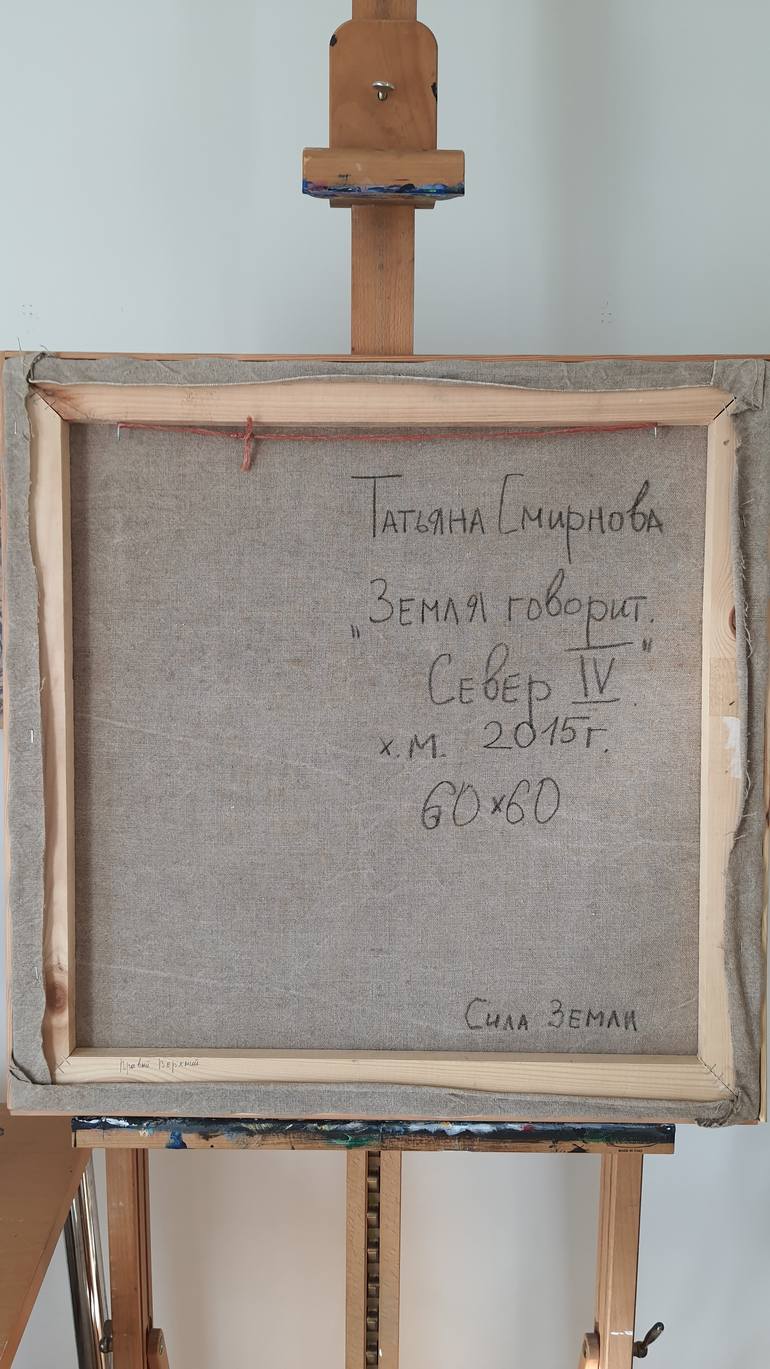 Татьяна Смирнова
„Земля говорит.
Север IV."
х.м. 2015г.
60х60
Сила Земли
правый верхний